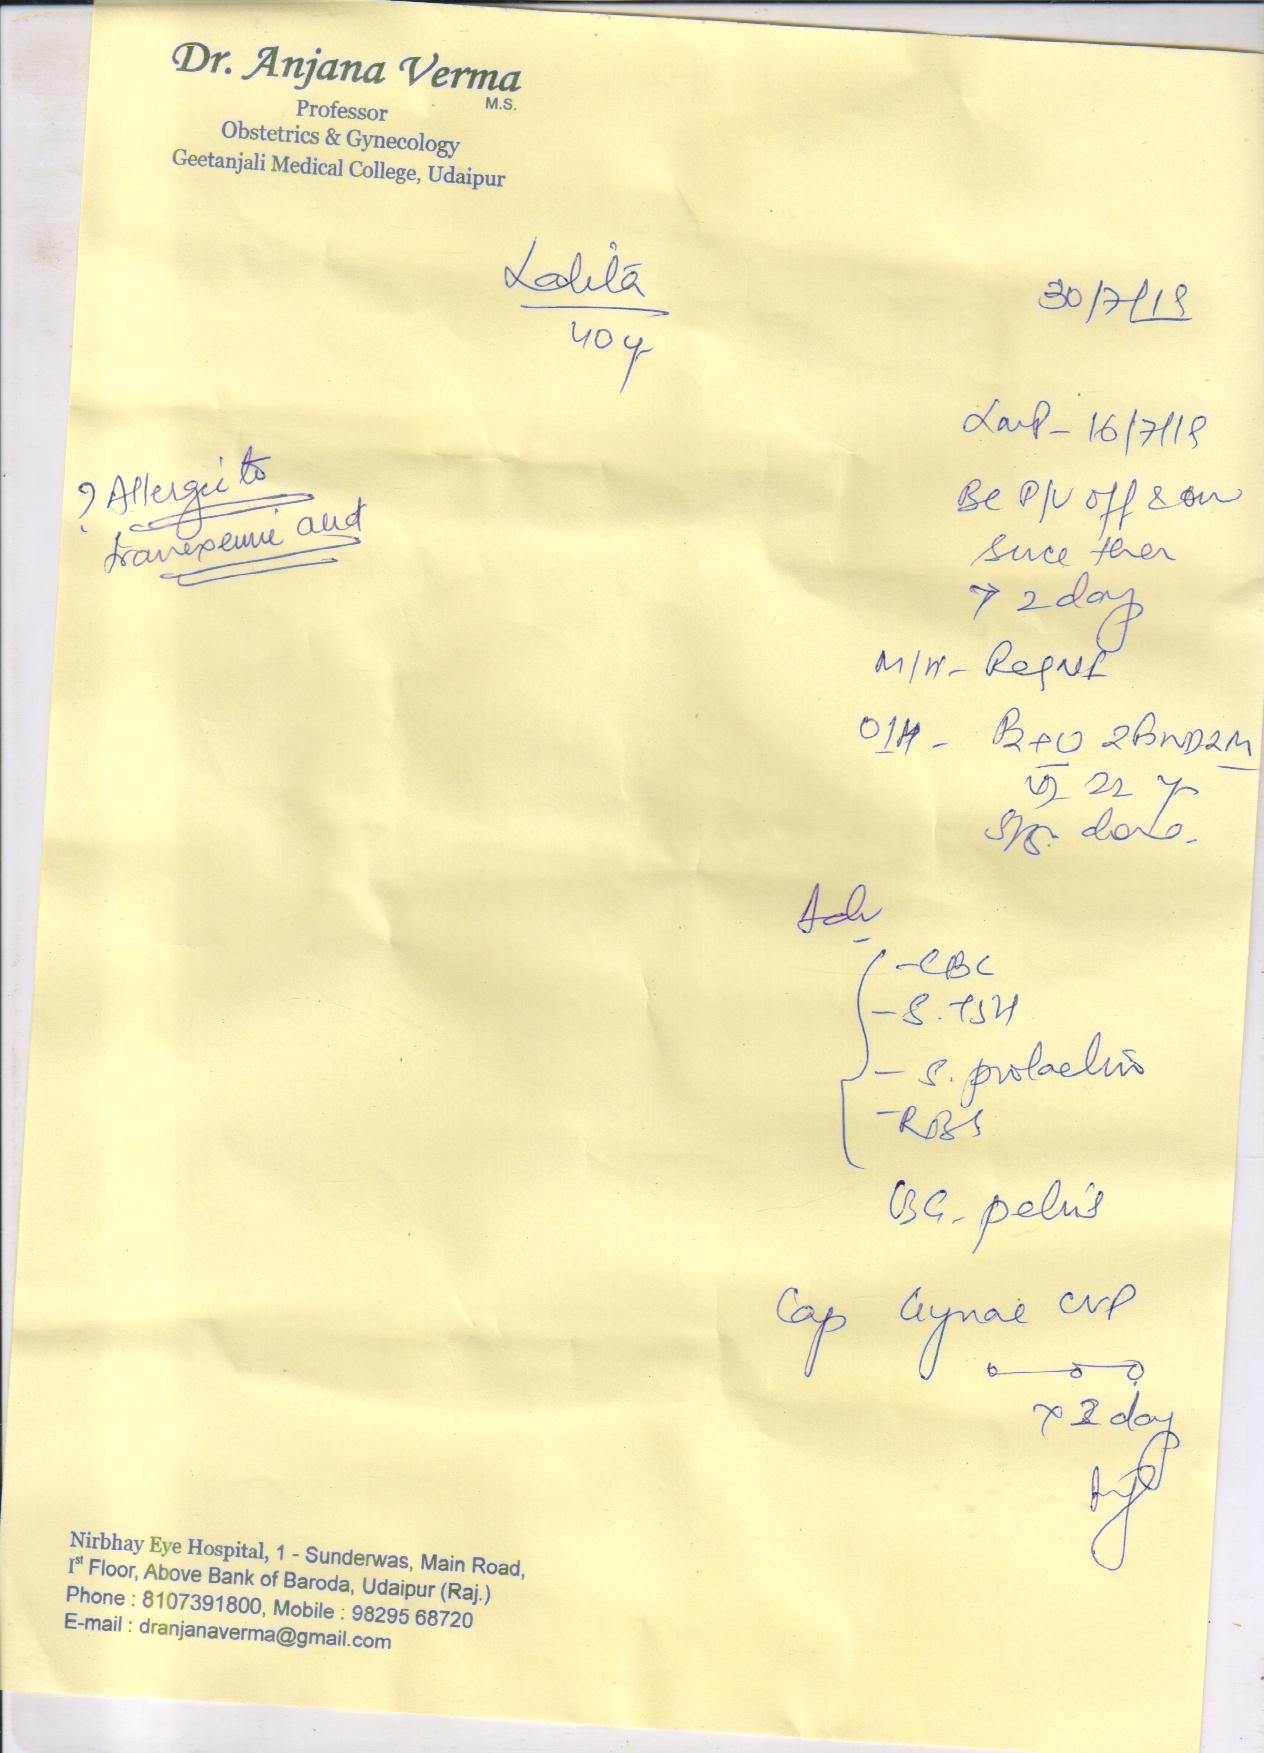 Dr. Anjana Verma
M.S.
Professor
Obstetrics & Gynecology
Geetanjali Medical College, Udaipur
40 y
30/7/19
? Allergic to
tranexemic acid
LMP - 16/7/19
P/V off & on
since then
2 day
M/H -
O/H -
22 y
done.
Adv
- CBC
- S. TSH
- S. prolactin
- RBS
pelvis
Cap Gynae CVP
day
Nirbhay Eye Hospital, 1 - Sunderwas, Main Road,
Ist Floor, Above Bank of Baroda, Udaipur (Raj.)
Phone : 8107391800, Mobile : 98295 68720
E-mail : dranjanaverma@gmail.com